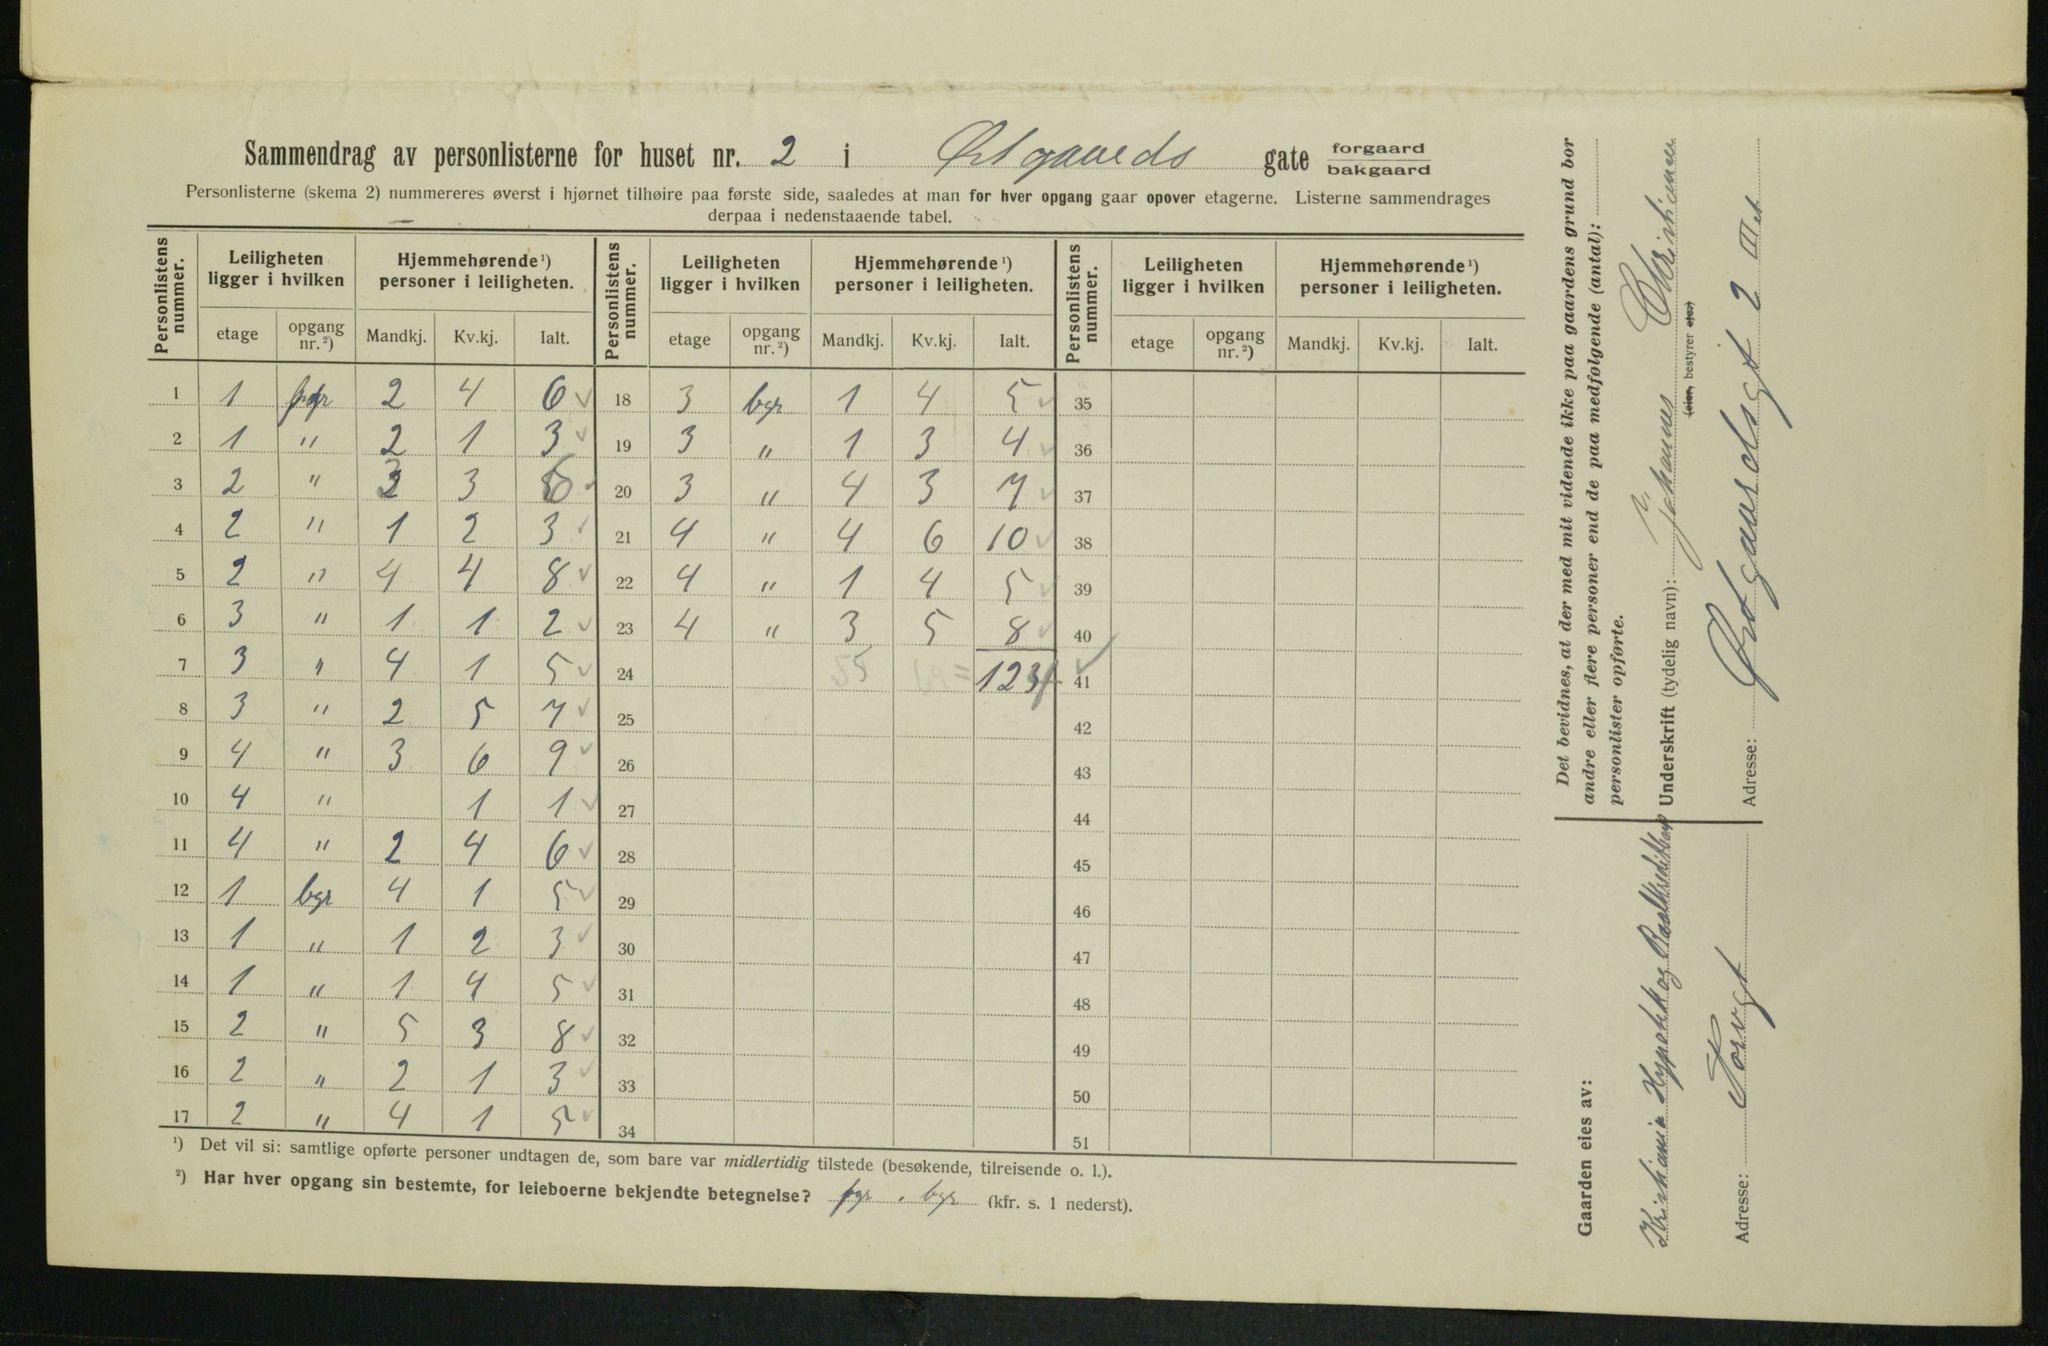 Sammendrag av personlisterne for huset nr. 2 i Østgaards gate forgaard bakgaard
Personlisterne (skema 2) nummereres øverst i hjørnet tilhøire paa første side, saaledes at man for hver opgang gaar opover etagerne. Listerne sammendrages
derpaa i nedenstaaende tabel.
Personlistens nummer. Leiligheten ligger i hvilken Hjemmehørende ¹) personer i leiligheten. Personlistens nummer. Leiligheten ligger i hvilken Hjemmehørende ¹) personer i leiligheten. Personlistens nummer. Leiligheten ligger i hvilken Hjemmehørende ¹) personer i leiligheten.
etage opgang nr. ²) Mandkj. Kv.kj. Ialt. etage opgang nr. ²) Mandkj. Kv.kj. Ialt. etage opgang nr. ²) Mandkj. Kv.kj. Ialt.
1 1 fgr 2 4 6 ✓ 18 3 bgr 1 4 5 ✓ 35
2 1 " 2 1 3 ✓ 19 3 " 1 3 4 ✓ 36
3 2 " 3 3 6 ✓ 20 3 " 4 3 7 ✓ 37
4 2 " 1 2 3 ✓ 21 4 " 4 6 10 ✓ 38
5 2 " 4 4 8 ✓ 22 4 " 1 4 5 ✓ 39
6 3 " 1 1 2 ✓ 23 4 " 3 5 8 ✓ 40
7 3 " 4 1 5 ✓ 24 55 69 = 123 ✓ 41
8 3 " 2 5 7 ✓ 25 42
9 4 " 3 6 9 ✓ 26 43
10 4 " 1 1 ✓ 27 44
11 4 " 2 4 6 ✓ 28 45
12 1 bgr 4 1 5 ✓ 29 46
13 1 " 1 2 3 ✓ 30 47
14 1 " 1 4 5 ✓ 31 48
15 2 " 5 3 8 ✓ 32 49
16 2 " 2 1 3 ✓ 33 50
17 2 " 4 1 5 ✓ 34 51
¹) Det vil si: samtlige opførte personer undtagen de, som bare var midlertidig tilstede (besøkende, tilreisende o. l.).
²) Har hver opgang sin bestemte, for leieboerne bekjendte betegnelse? fgr. bgr (kfr. s. 1 nederst).
Det bevidnes, at der med mit vidende ikke paa gaardens grund bor
andre eller flere personer end de paa medfølgende (antal):
personlister opførte.
Underskrift (tydelig navn): Johannes Christiansen
(eier, bestyrer eter)
Adresse: Østgaardsgt 2 III et
Gaarden eies av:
Kristiania Hypothek og Realkreditbank
Adresse: Torvgt